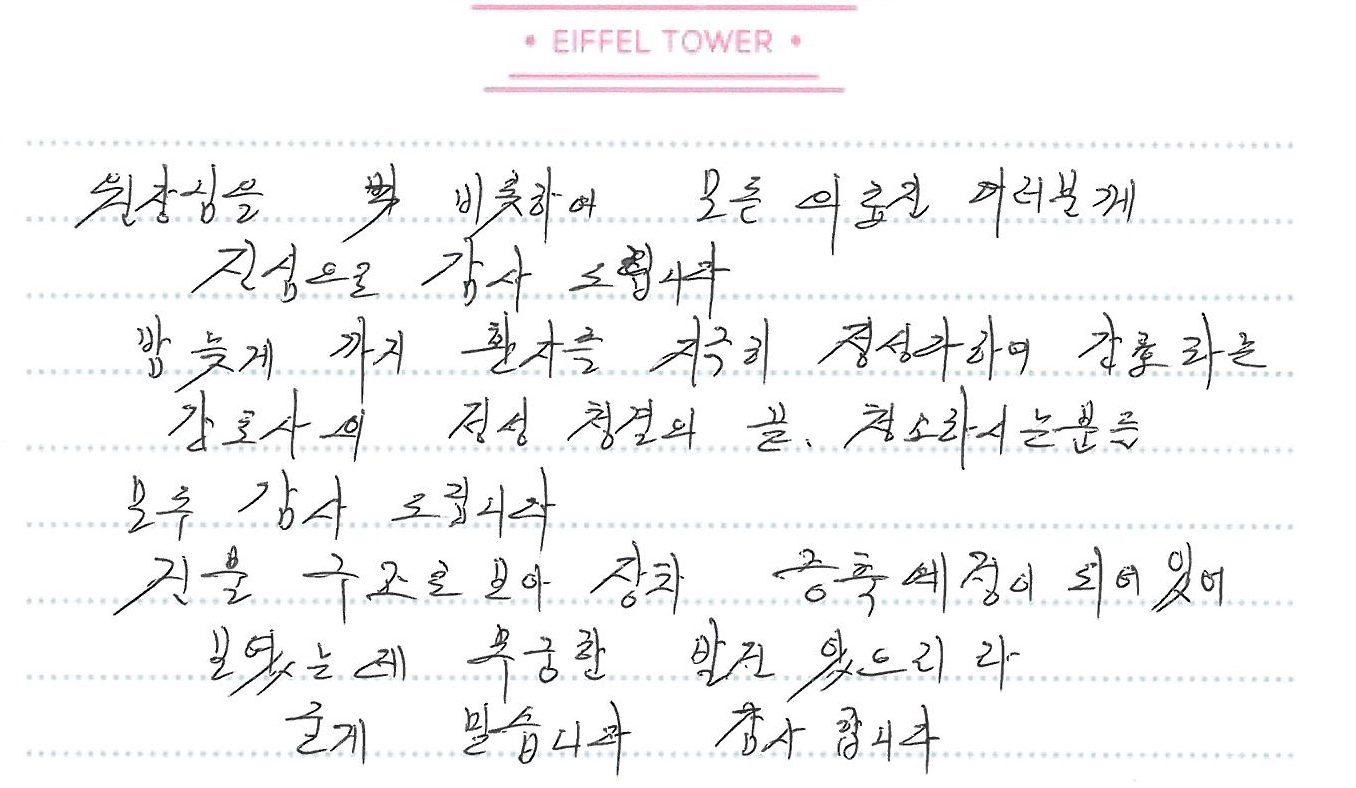 • EIFFEL TOWER •
원장님을 비롯하여 모든 의료진 여러분께
진심으로 감사 드립니다
밤 늦게 까지 환자를 지극히 정성다하여 간호 하는
간호사의 정성 청결의 끝. 청소하시는분들
모두 감사 드립니다
건물 구조로 보아 장차 증축예정이 되어있어
보였는데 무궁한 발전 있으리라
굳게 믿습니다 감사 합니다